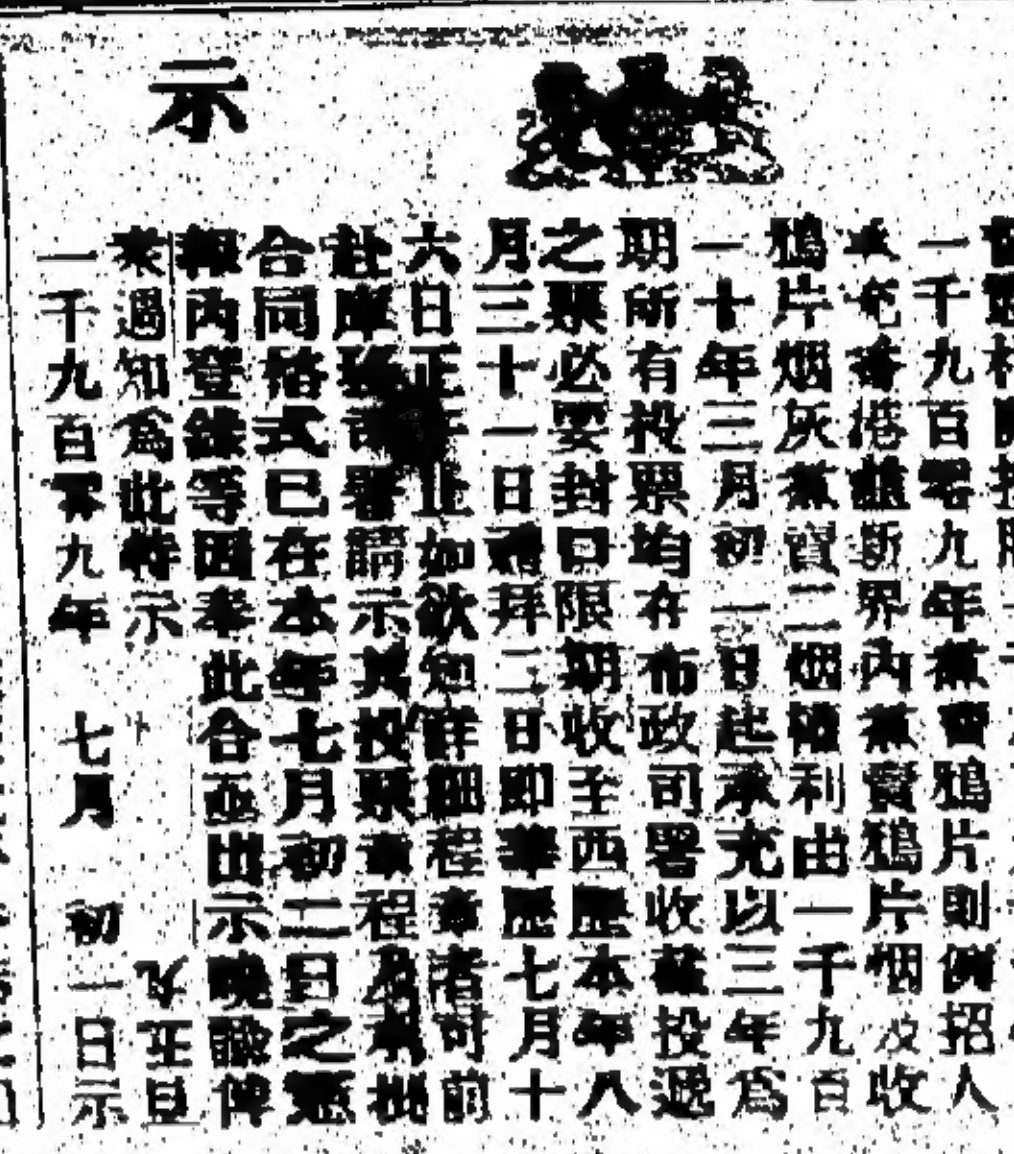 示
一千九百零九年煮賣鴉片則例招人
承充香港曁新界內煮賣鴉片烟及收
鴉片烟灰煮賣二烟權利由一千九百
一十年三月初一日起承充以三年爲
期所有投票均在布政司署收截投遞
之票必要封口限期收至西歷本年八
月三十一日禮拜二日即華歷七月十
六日正午止如欲知詳細程章者可前
赴庫務司署請示其投票章程及承批
合同格式已在本年七月初二日之憲
報內登錄等因奉此合亟出示曉諭俾
衆週知爲此特示
一千九百零九年 七月 初二日示